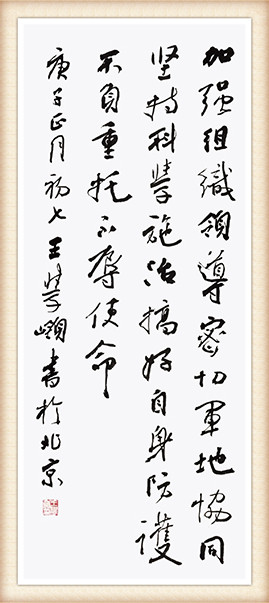 加强组織领導密切軍地協同
坚持科學施治搞好自身防護
不负重托不辱使命
庚子正月初七王學嶺書於北京